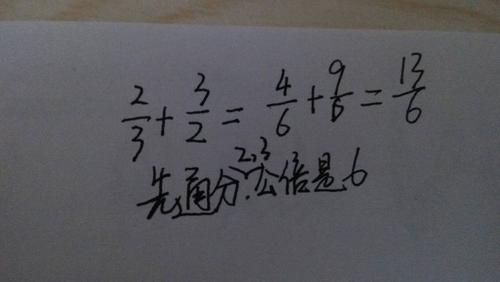 2/3 + 3/2 = 4/6 + 9/6 = 13/6
先通分.2,3公倍是6